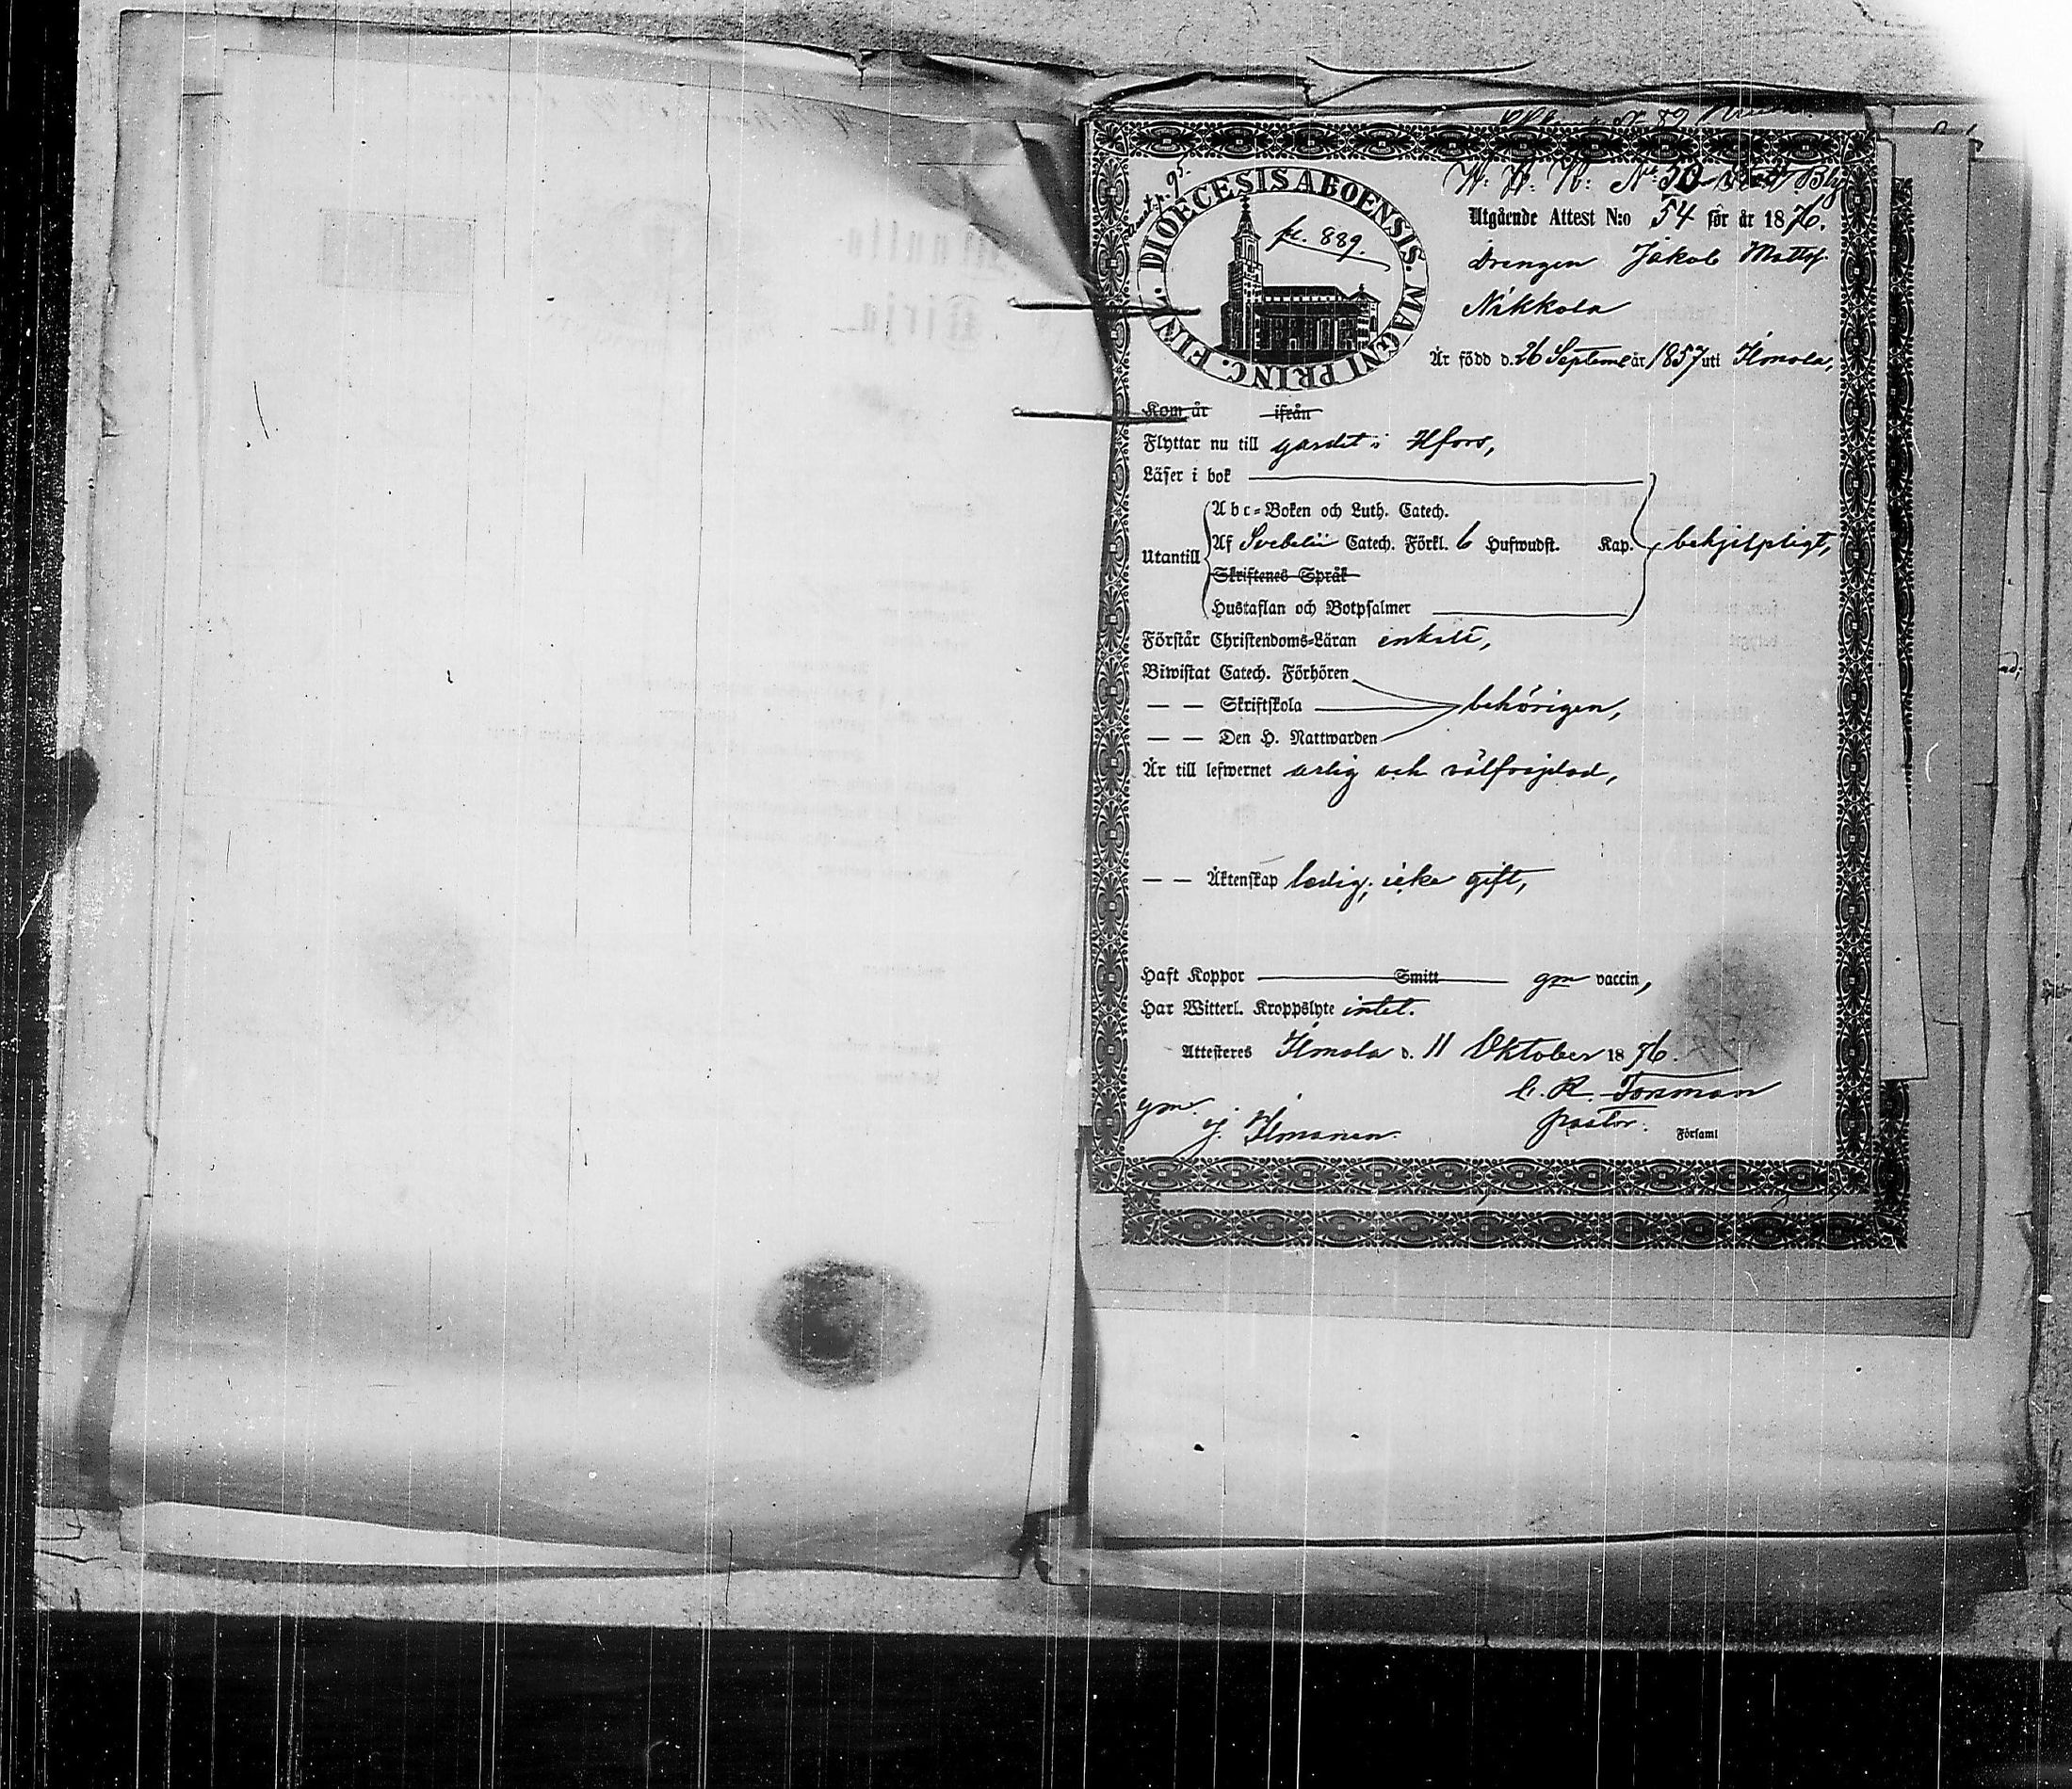 DIOECESIS ABOENSIS. MAGNI PRINC. FINL.
p. 95.
p. 889.
N:o 30
Utgående Attest N:o 54 för år 1876.
Drengen Jakob Mattsf.
Nikkola
Är född d. 26 Septemb år 1857 uti Ilmola,
Kom år ifrån
Flyttar nu till gardet i Hfors,
Läser i bok
Abc-Boken och Luth. Catech.
Utantill Af Svebelii Catech. Förkl. 6 Hufwudst. Kap. behjelpligt,
Skriftenes Språk
Hustaflan och Botpsalmer
Förstår Christendoms-Läran enkelt,
Biwistat Catech. Förhören
— — Skriftskola behörigen,
— — Den H. Nattwarden
Är till lefwernet ärlig och välfrejdad,
— — Äktenskap ledig; icke gift,
Haft Koppor Smitt gm vaccin,
Har Witterl. Kroppslyte intet.
Attesteras Ilmola d. 11 Oktober 1876.
C. R. Forsman
gm. Pastor. Församl
J. Ilmonen.